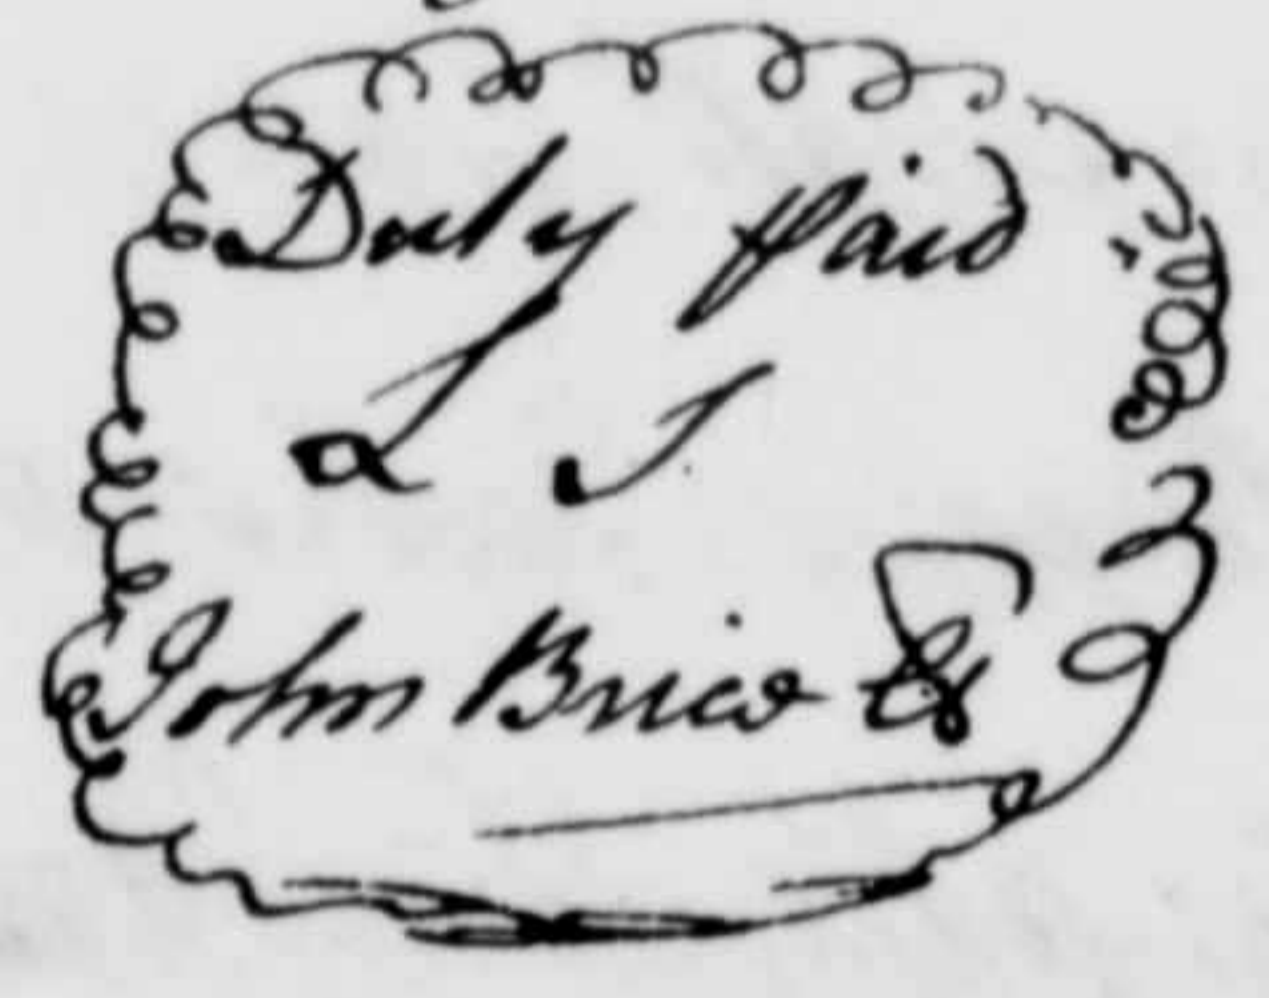 Duty paid
L S
John Brice